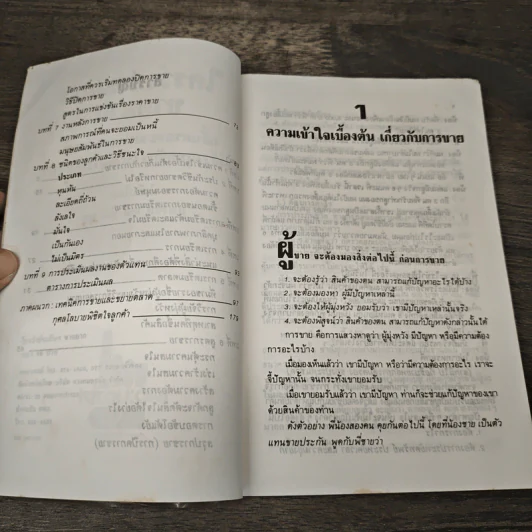 โอกาสที่ควรเริ่มทดลองปิดการขาย
วิธีปิดการขาย
สูตรในการแข่งขันเรื่องราคาขาย
บทที่ 7 งานหลังการขาย
สภาพการณ์ที่คนจะยอมเป็นหนี้
มนุษยสัมพันธ์ในการขาย
บทที่ 8 ชนิดของลูกค้าและวิธีชนะใจ
ประเภท
หุนหัน
ละเอียดถี่ถ้วน
ลังเลใจ
มั่นใจ
เป็นกันเอง
ไม่เป็นมิตร
บทที่ 9 การประเมินผลงานของตัวแทน
ตารางการประเมินผล
ภาคผนวก : เทคนิคการขายและขยายตลาด 91
กุศโลบายพิชิตใจลูกค้า 179
1
ความเข้าใจเบื้องต้น เกี่ยวกับการขาย
ผู้ขาย จะต้องมองสิ่งต่อไปนี้ ก่อนการขาย
1. จะต้องรู้ว่า สินค้าของตน สามารถแก้ปัญหาอะไรได้บ้าง
2. จะต้องมองหา ผู้มีปัญหาเหล่านี้
3. จะต้องให้ผู้มุ่งหวัง ยอมรับว่า เขามีปัญหาเหล่านั้นจริง
4. จะต้องพิสูจน์ว่า สินค้าของตน สามารถแก้ปัญหาดังกล่าวนั้นได้
การขาย คือการแสวงหาดูว่า ผู้มุ่งหวัง มีปัญหา หรือมีความต้อง
การอะไรบ้าง
เมื่อมองเห็นแล้วว่า เขามีปัญหา หรือว่ามีความต้องการอะไร เราจะ
จี้ปัญหานั้น จนกระทั่งเขายอมรับ
เมื่อเขายอมรับแล้วว่า เขามีปัญหา ท่านก็จะช่วยแก้ปัญหาของเขา
ด้วยสินค้าของท่าน
ดังตัวอย่าง พี่น้องสองคน คุยกันต่อไปนี้ โดยที่น้องชาย เป็นตัว
แทนขายประกัน พูดกับพี่ชายว่า